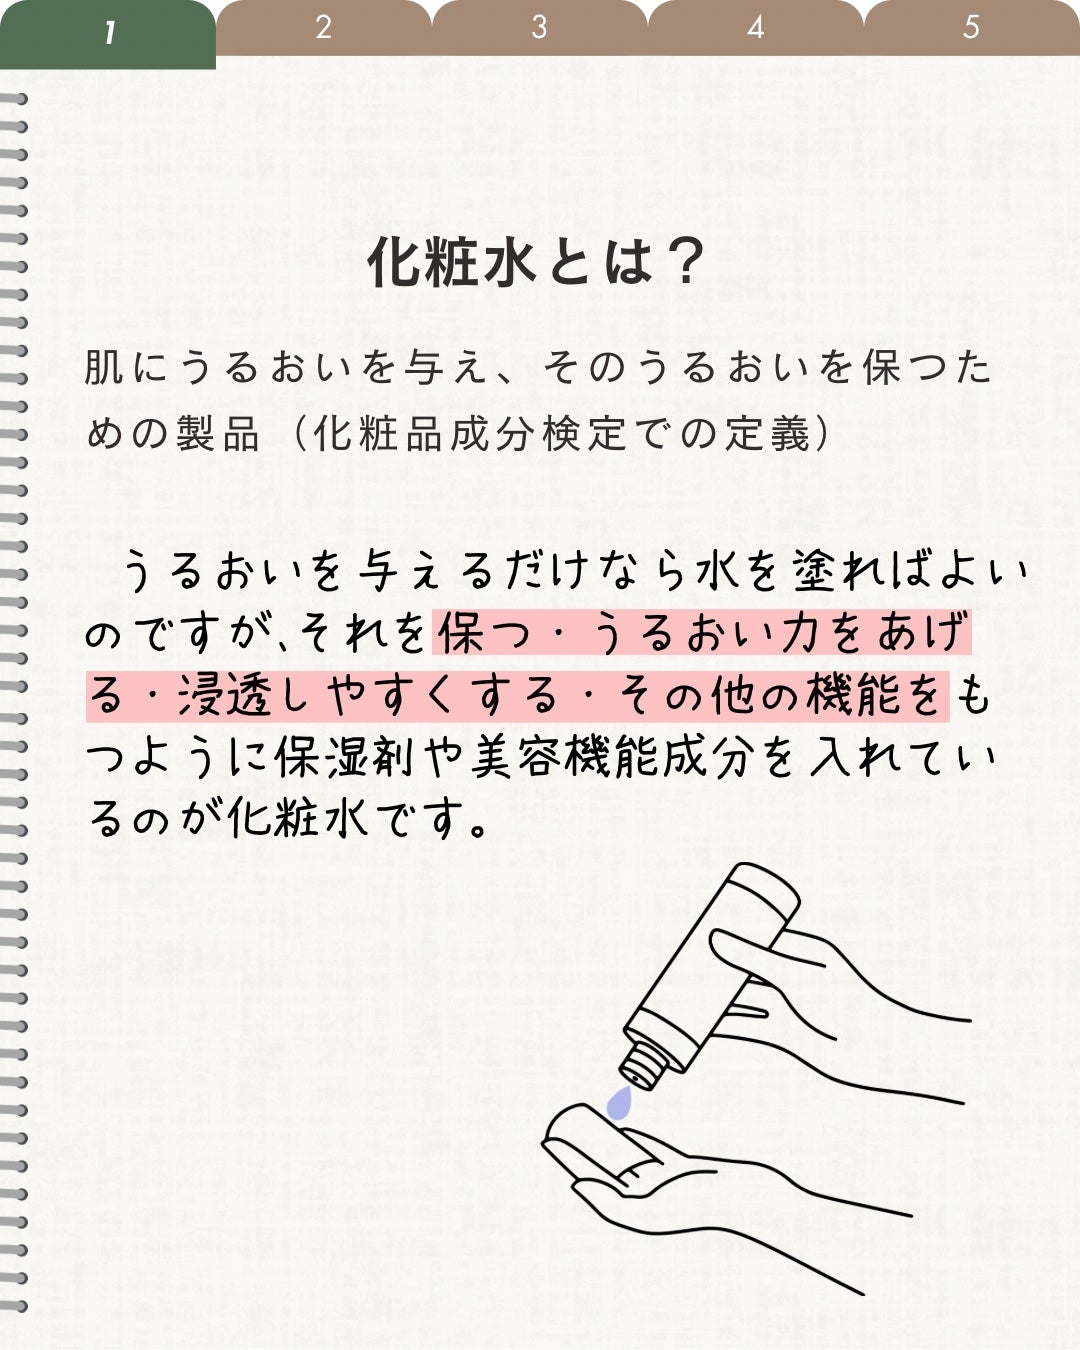 1
2
3
4
5
化粧水とは？
肌にうるおいを与え、そのうるおいを保つた
めの製品（化粧品成分検定での定義）
うるおいを与えるだけなら水を塗ればよい
のですが、それを保つ・うるおい力をあげ
る・浸透しやすくする・その他の機能をも
つように保湿剤や美容機能成分を入れてい
るのが化粧水です。